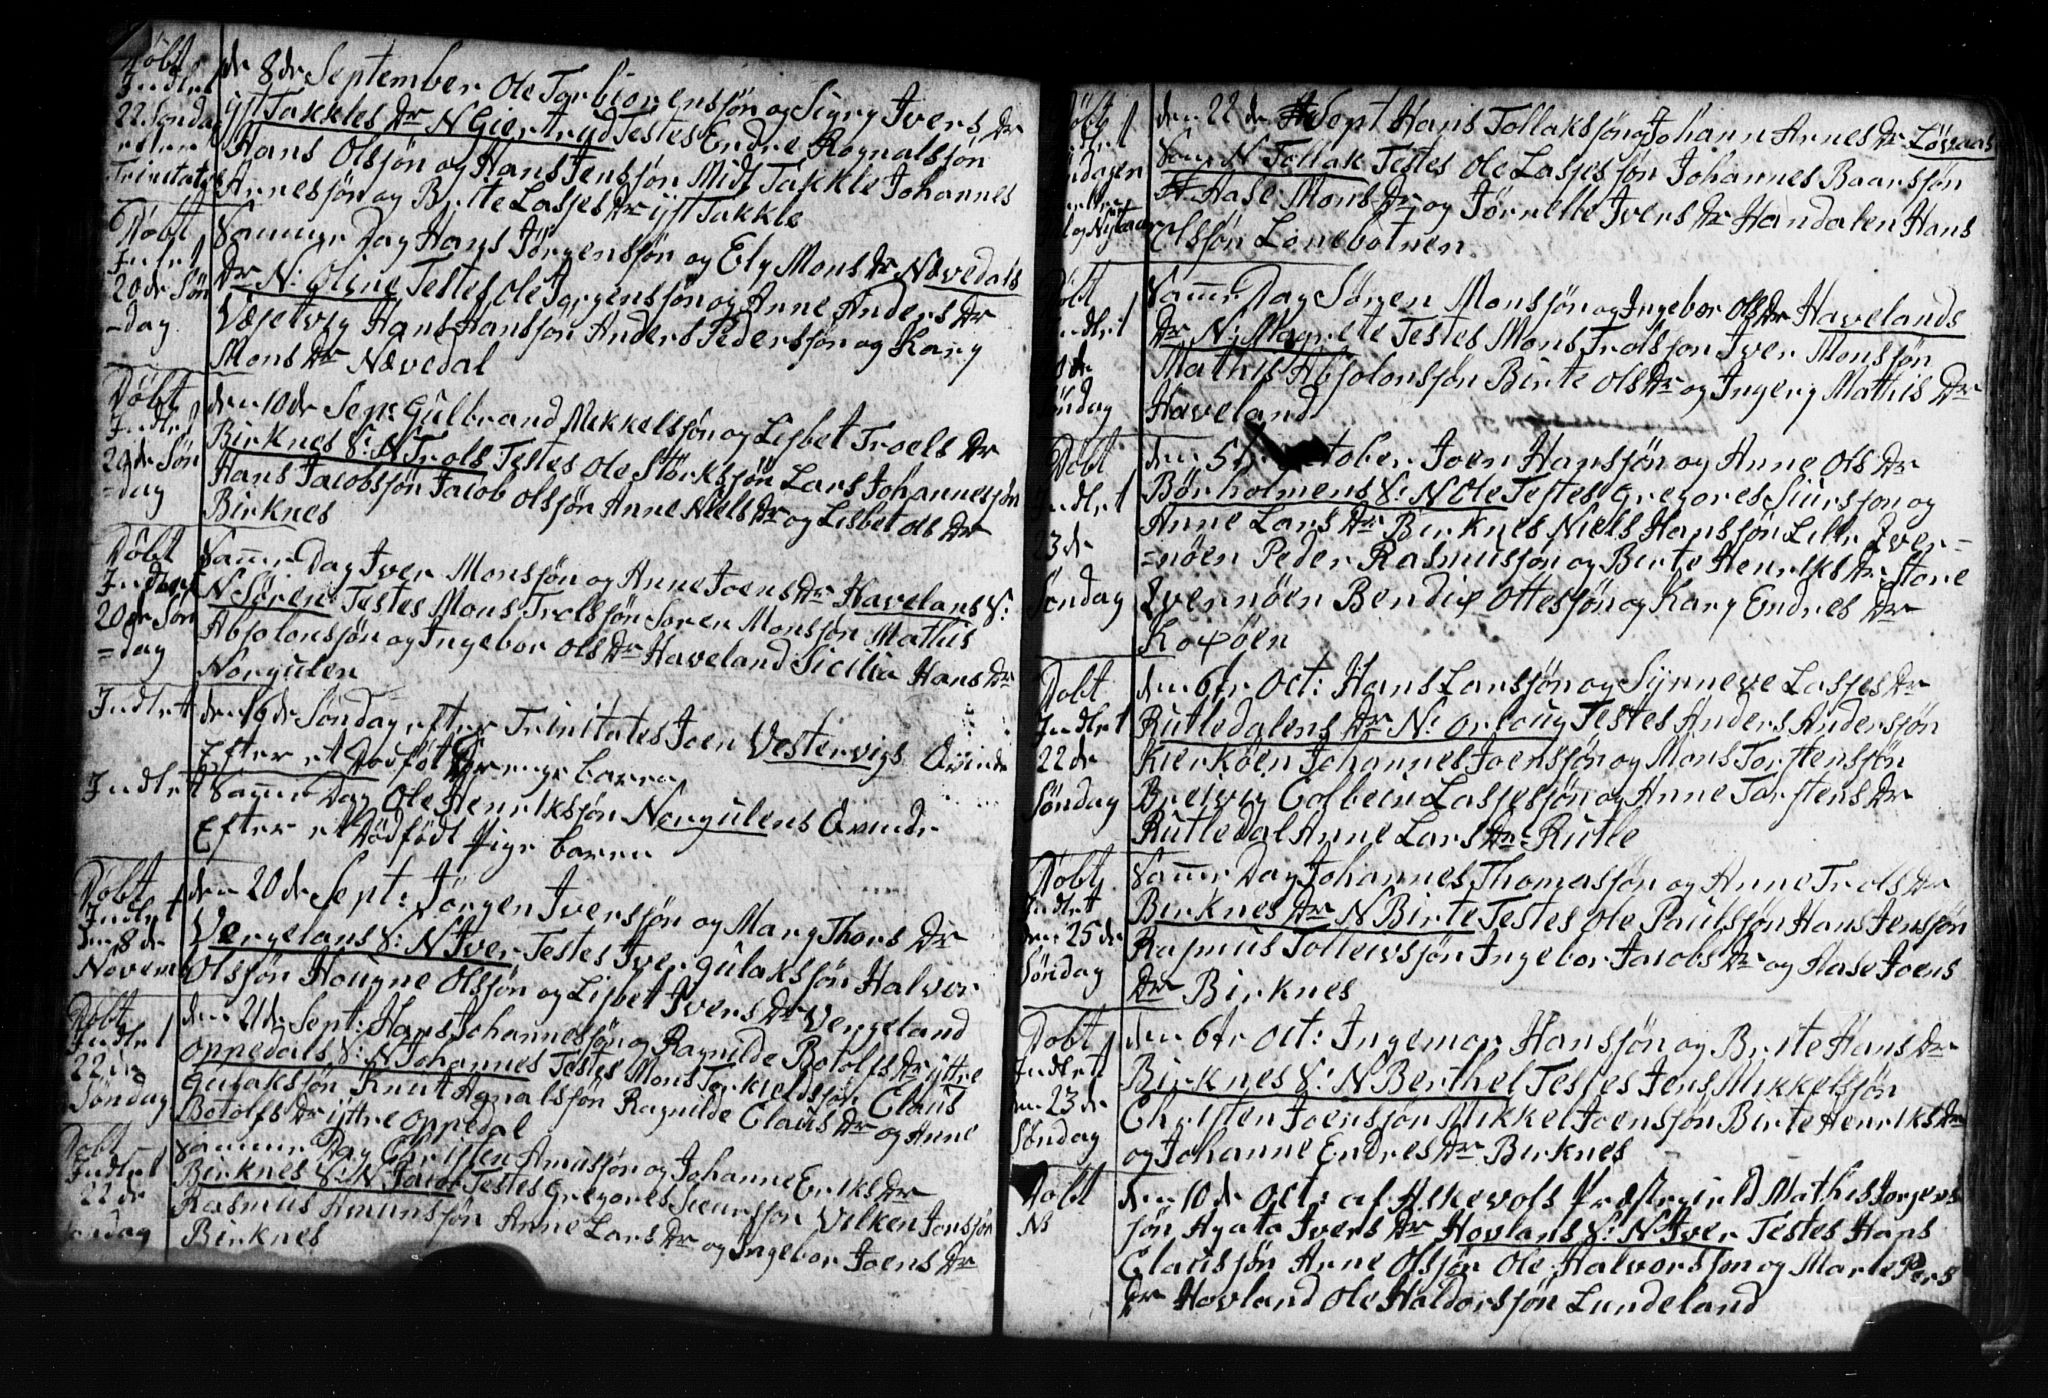 Døbt
Indlet
22 Søndag
efter
Trinitatis
de 8de September Ole Torbiørensøn og Sigry Ivers Dr
yst Takkles Dr N Giertrud Testes Endre Rognalsøn
Hans Olssøn og Hans Jensøn Midt Takkle Johannes
Arnesøn og Byrte Lasses Dr yst Takkle
Døbt
Indlet
20de Søn
-dag
Sammer Dag Hans Jörgensøn og Ely Mons Dr Nævedals
Dr N: Oline Testes Ole Jørgensøn og Anne Anders Dr
Vasetvig Hans Hansøn Anders Pedersøn og Kary
Mons Dr Nævedal
Døbt
Indlet
20de Søn
=dag
den 10de Sep: Gulbrand Mikkelsøn og Lisbet Troels Dr
Birknes S: N Trols Testes Ole Størksøn Lars Johannesøn
Hans Jacobsøn Jacob Olssøn Anne Niels Dr og Lisbet Ols Dr
Birknes
Døbt
Indlet
20de Søn
=dag
Samer Dag Iver Monsøn og Anne Joens Dr Havelans S:
N Søren Testes Mons Trolsøn Søren Monsøn Mathis
Absolonsøn og Ingebor Ols Dr Haveland Sicilia Hans Dr
Norgulen
Indlet
den 16de Søndag efter Trinitates Joen Vestervigs Qvinde
Efter et Dødføt Drenge barn
Indlet
Samer Dag Ole Henriksøn Norgulens Qvinde
Efter et Dödfödt Pige barn
Døbt
Indlet
den 8de
Novem
den 20de Sept: Jörgen Iversøn og Mary Thors Dr
Vergelans S: N Iver Testes Iver Gulaksøn Halvor
Olssøn Hougne Olssøn og Lisbet Ivers Dr Vergeland
Døbt
Indlet
22de
Søndag
den 21de Sept: Hans Johannesøn og Ragnilde Botolfs Dr yttre
Oppedals S: N Johannes Testes Mons Torkieldsøn Claus
Gulaksøn Knut Agnalsøn Ragnilde Claus Dr og Anne
Botolfs Dr yttre Oppedal
Døbt
Indlet
22de
Søndag
Sammer Dag Christen Amusøn og Johanne Eriks Dr
Birknes S: N Jacob Testes Gregores Siursøn Vilken Jonsøn
Rasmus Amunsøn Anne Lars Dr og Ingebor Joens Dr
Birknes
Døbt
den 22de Sept Hans Tollaksøn og Johann Arnes Dr Løvaas
Søn N Tollak Testes Ole Lasses søn Johannes Baarsøn
Aase Mons Dr og Jörnelle Ivers Dr Handalen Hans
Olssøn Lonebotnen
Døbt
Indlet
20de
Søndag
Samr Dag Søren Monsøn og Ingebor Ols Dr Havelands
Dr N: Magrete Testes Mons Trolsøn Iver Monsøn
Mathis Absolonsøn Birte Ols Dr og Ingery Mathis Dr
Haveland
Døbt
Indlet
23de
Søndag
den 5te October Joen Hansøn og Anne Ols Dr
Børholmens S: N Ole Testes Gregores Siursøn og
Anne Lars Dr Birknes Niels Hansøn Lille Qver=
=nöen Peder Rasmusøn og Berte Henriks Dr Store
Qvernöen Bendix Ottesøn og Kary Endres Dr
Roxöen
Døbt
Indlet
22de
Søndag
den 6te Oct: Hans Larsøn og Synneve Lasses Dr
Rutledalens Dr N: Orloug Testes Anders Andersøn
Kierköen Johannes Joensøn og Mons Torstensøn
Breivig Colbein Lassessøn og Anne Torstens Dr
Rutledal Anne Lars Dr Rutle
Døbt
Indlet
den 25de
Søndag
Samer Dag Johannes Thomasøn og Anne Trols Dr
Birknes Dr N Birte Testes Ole Paulsøn Hans Jensøn
Rasmus Tolleivsøn Ingebor Jacobs Dr og Aase Joens
Dr Birknes
Døbt
Indlet
den 23de
Søndag
den 6te Oct: Ingemor Hansøn og Brite Hans Dr
Birknes S: N Berthel Testes Jens Mikkelsøn
Christen Joensøn Mikkel Joensøn Birte Henriks Dr
og Johanne Endres Dr Birknes
Døbt
den 10de Oct: af Askevols Præstegield Mathis Jörgen
søn Agata Ivers Dr Hovlans S: N Iver Testes Hans
Clausøn Arne Olssøn Ole Halvorsøn og Marte Pers
Dr Hovland Ole Haldorsøn Lundeland